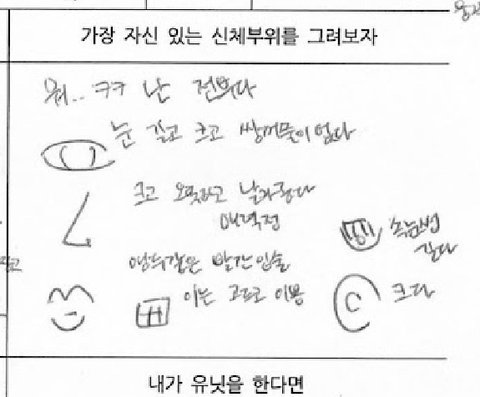 가장 자신 있는 신체부위를 그려보자
뭐.. ㅋㅋ 난 전부다
눈 길고 크고 쌍꺼풀이 없다
크고 오똑하고 날카롭다
매력점
속눈썹
길다
앵두같은 빨간입술
이는 고르고 이쁨
크다
내가 유닛을 한다면